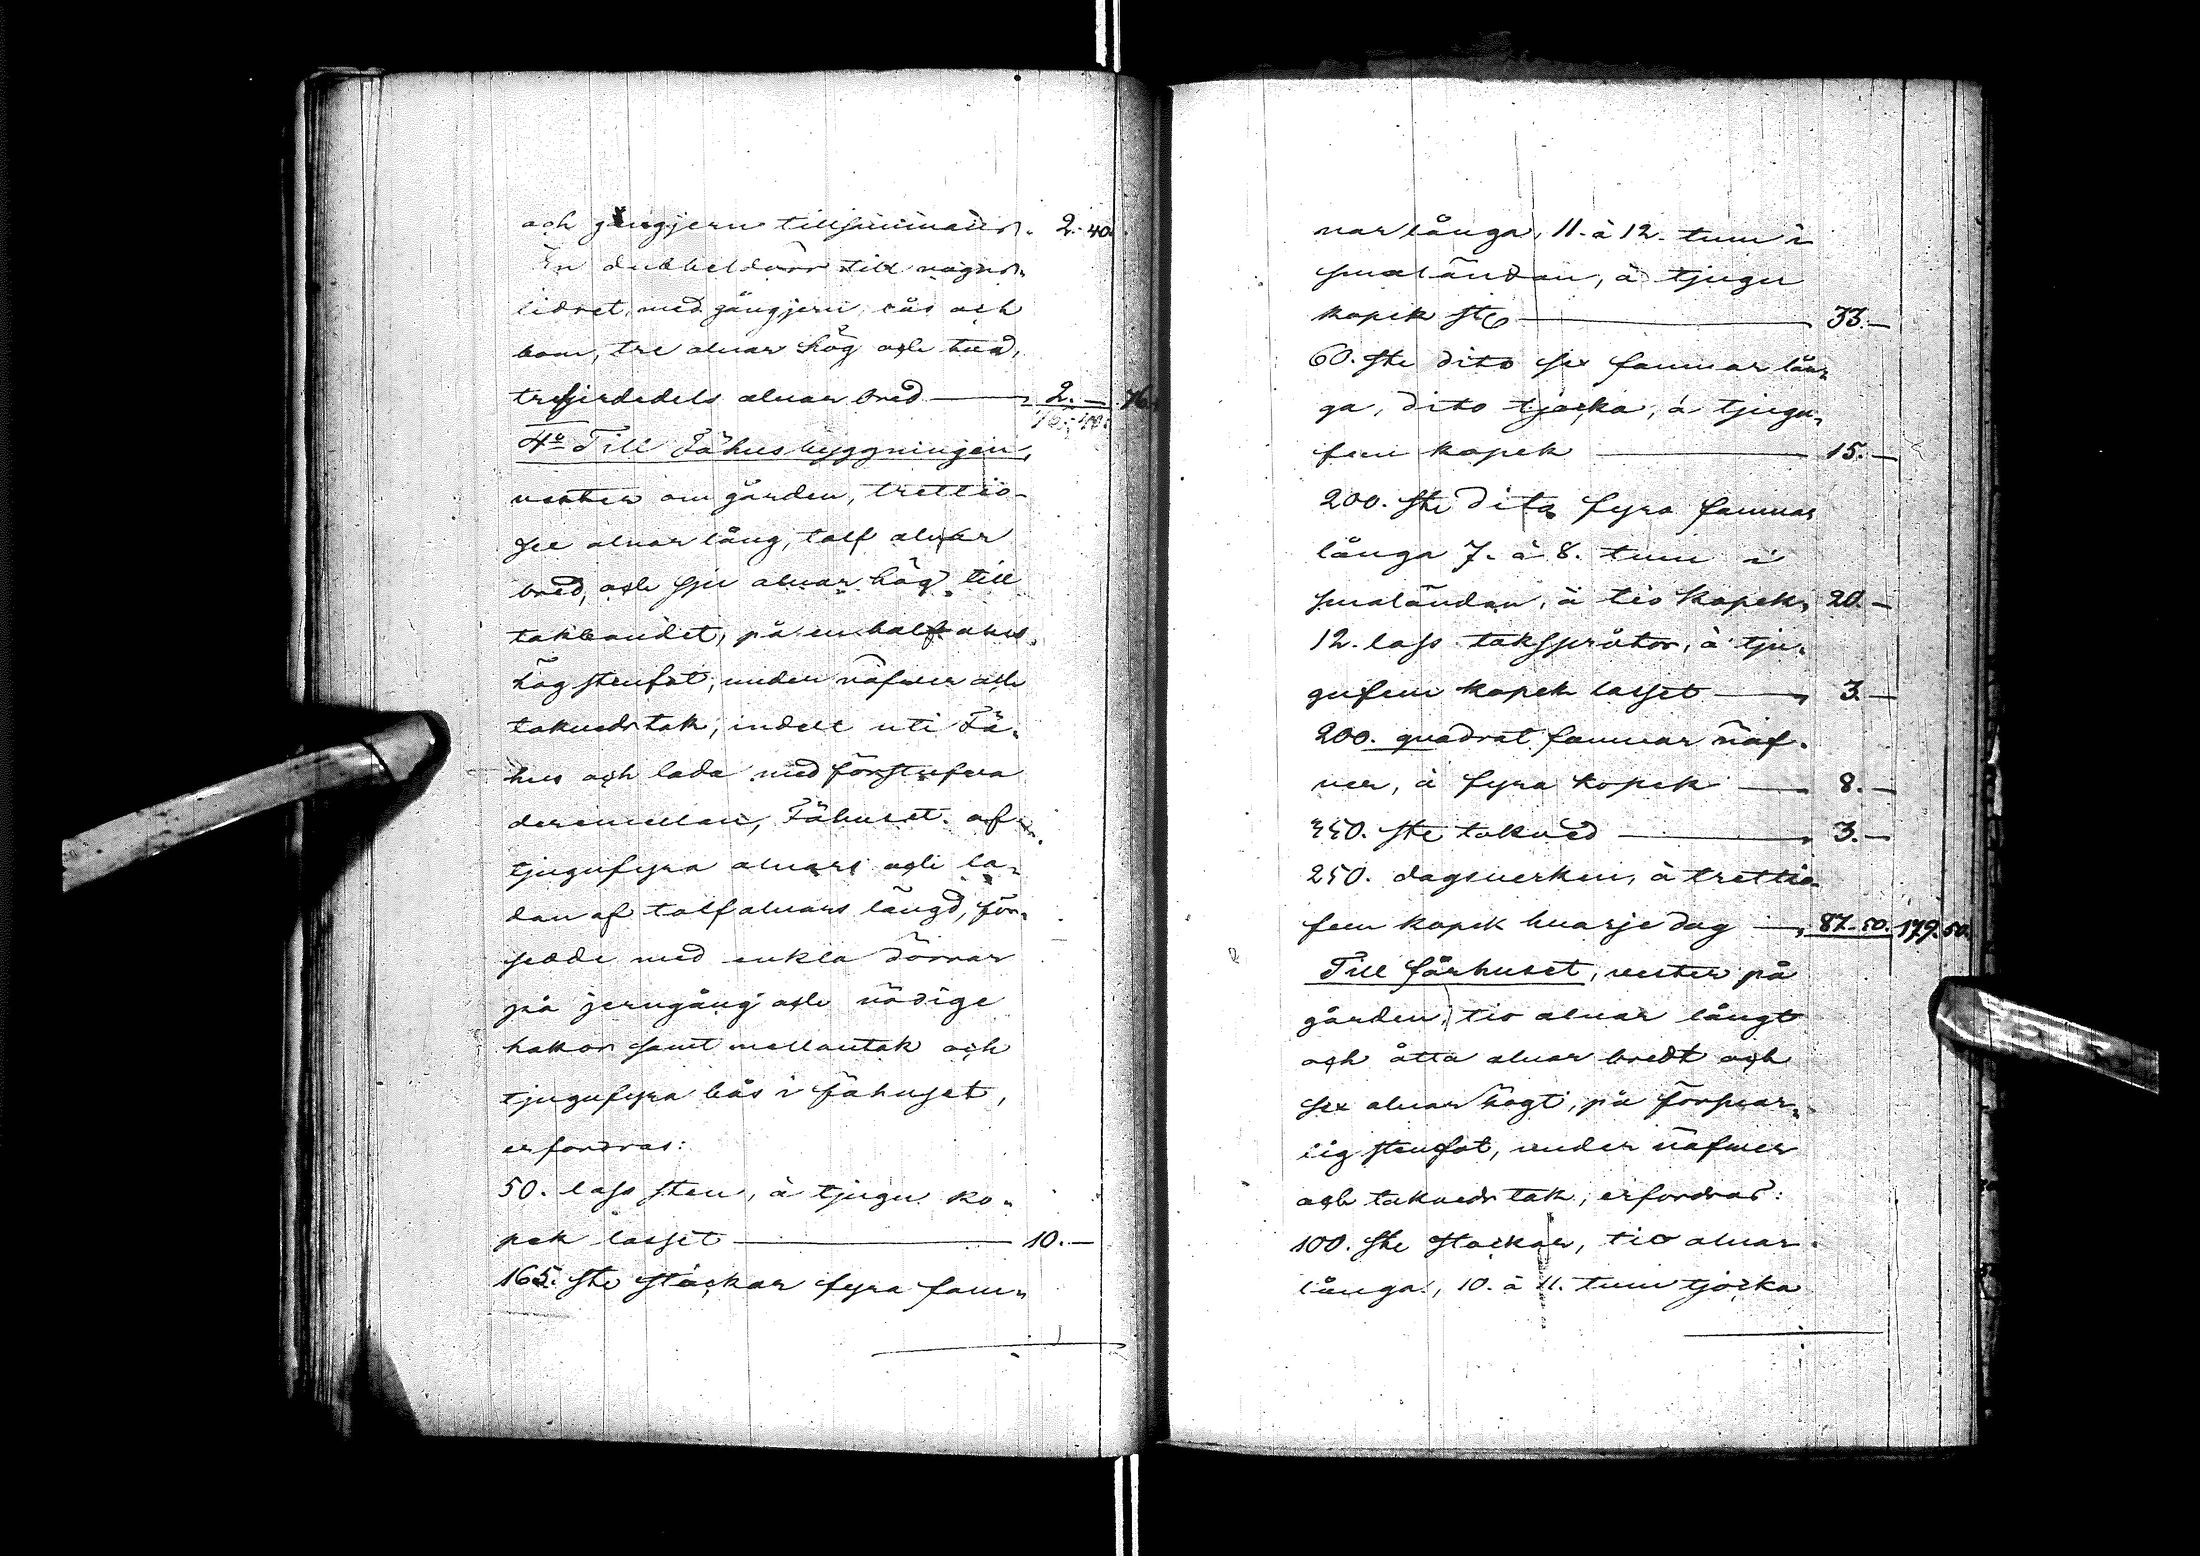 och gångjern tillsammans. 2. 40.
En dubbeldörr till vagns-
lidret, med gångjern, lås och
bom, tre alnar hög och två,
trefjerdedels alnar bred — 2. — 76.
4º Till Fähusbyggningen,
vester om gården, trettio-
sex alnar lång, tolf alnar
bred, och sju alnar hög till
takbandet, på en half alns
hög stenfot, under näfver och
takvedstak, indelt uti Fä-
hus och lada med förstufva
deremellan, Fähuset af
tjugufyra alnars och la-
dan af tolf alnars längd, för-
sedde med enkla dörrar
på jerngång och nödige
hakar samt mellantak och
tjugufyra bås i fähuset,
erfordras:
50. lass sten, à tjugu ko-
pek lasset — 10. —
165. st. stockar fyra fam-
nar långa, 11. à 12. tum i
smaländan, à tjugu
kopek st. — 33. —
60. st. dito sex famnar lån-
ga, dito tjocka, à tjugu-
fem kopek — 15. —
200. st. dito fyra famnar
långa 7. à 8. tum i
smaländan, à tio kopek, 20. —
12. lass takspråtor, à tju-
gufem kopek lasset — 3. —
200. quadrat famnar näf-
ver, à fyra kopek — 8. —
st. takved — 3. —
250. dagsverken, à trettio-
fem kopek hvarje dag — 87. 50. 179. 50.
Till fårhuset, vester på
gården, tio alnar långt
och åtta alnar bredt och
sex alnar högt, på försvar-
lig stenfot, under näfver
och takvedstak, erfordras:
100. st. stockar, tio alnar
långa, 10. à 11. tum tjocka